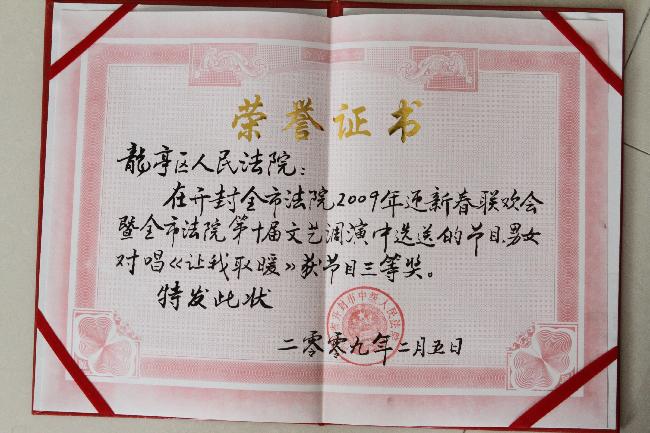 荣誉证书
龍亭区人民法院：
在开封全市法院2009年迎新春联欢会
暨全市法院第十届文艺调演中选送的节目男女
对唱《让我取暖》获节目三等奖。
特发此状
开封市中级人民法院
二零零九年二月五日